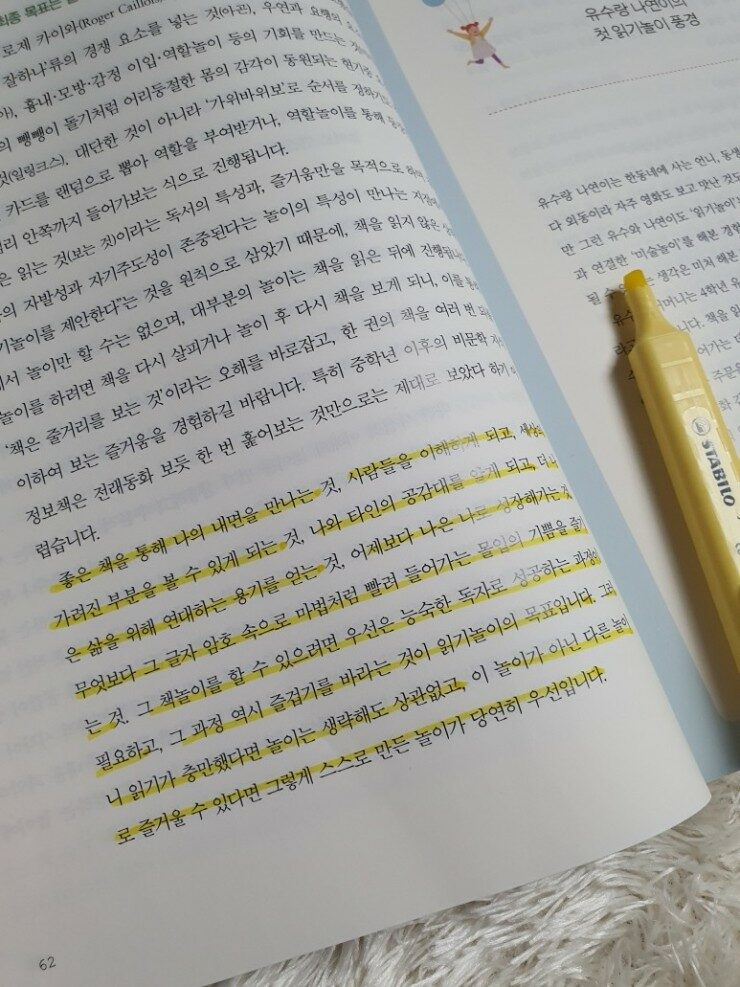 최종 목표는
로제 카이와(Roger Caillois)
잘하나'류의 경쟁 요소를 넣는 것(아곤), 우연과 요행의
흉내·모방·감정 이입·역할놀이 등의 기회를 만드는
뺑뺑이 돌기처럼 어리둥절한 몸의 감각이 동원되는
것(일링크스). 대단한 것이 아니라 '가위바위보'로 순서를 정하거나
카드를 랜덤으로 뽑아 역할을 부여받거나, 역할놀이를 통해
안쪽까지 들어가보는 식으로 진행됩니다.
은 읽는 것(보는 것)이라는 독서의 특성과, 즐거움만을 목적으로
의 자발성과 자기주도성이 존중된다는 놀이의 특성이 만나는
기놀이를 제안한다"는 것을 원칙으로 삼았기 때문에, 책을 읽지 않은
서 놀이만 할 수는 없으며, 대부분의 놀이는 책을 읽은 뒤에
놀이를 하려면 책을 다시 살피거나 놀이 후 다시 책을 보게 되니, 이를
'책은 줄거리를 보는 것'이라는 오해를 바로잡고, 한 권의 책을 여러 번
이하여 보는 즐거움을 경험하길 바랍니다. 특히 중학년 이후의 비문학
정보책은 전래동화 보듯 한 번 훑어보는 것만으로는 제대로 보았다 하기
렵습니다.
좋은 책을 통해 나의 내면을 만나는 것, 사람들을 이해하게 되고,
가려진 부분을 볼 수 있게 되는 것, 나와 타인의 공감대를 알게 되고, 더
은 삶을 위해 연대하는 용기를 얻는 것, 어제보다 나은 나로 성장해가는
무엇보다 그 글자 암호 속으로 마법처럼 빨려 들어가는 몰입의 기쁨을
는 것. 그 책놀이를 할 수 있으려면 우선은 능숙한 독자로 성공하는 과정이
필요하고, 그 과정 역시 즐겁기를 바라는 것이 읽기놀이의 목표입니다.
니 읽기가 충만했다면 놀이는 생략해도 상관없고, 이 놀이가 아닌 다른 놀이
로 즐거울 수 있다면 그렇게 스스로 만든 놀이가 당연히 우선입니다.
62
유수랑 나연이의
첫 읽기놀이 풍경
유수랑 나연이는 한동네에 사는 언니,
다 외동이라 자주 영화도 보고 맛난 것도
만 그런 유수와 나연이도 '읽기놀이'
과 연결한 '미술놀이'를 해본
생각은 미처 해본
4학년
STABILO